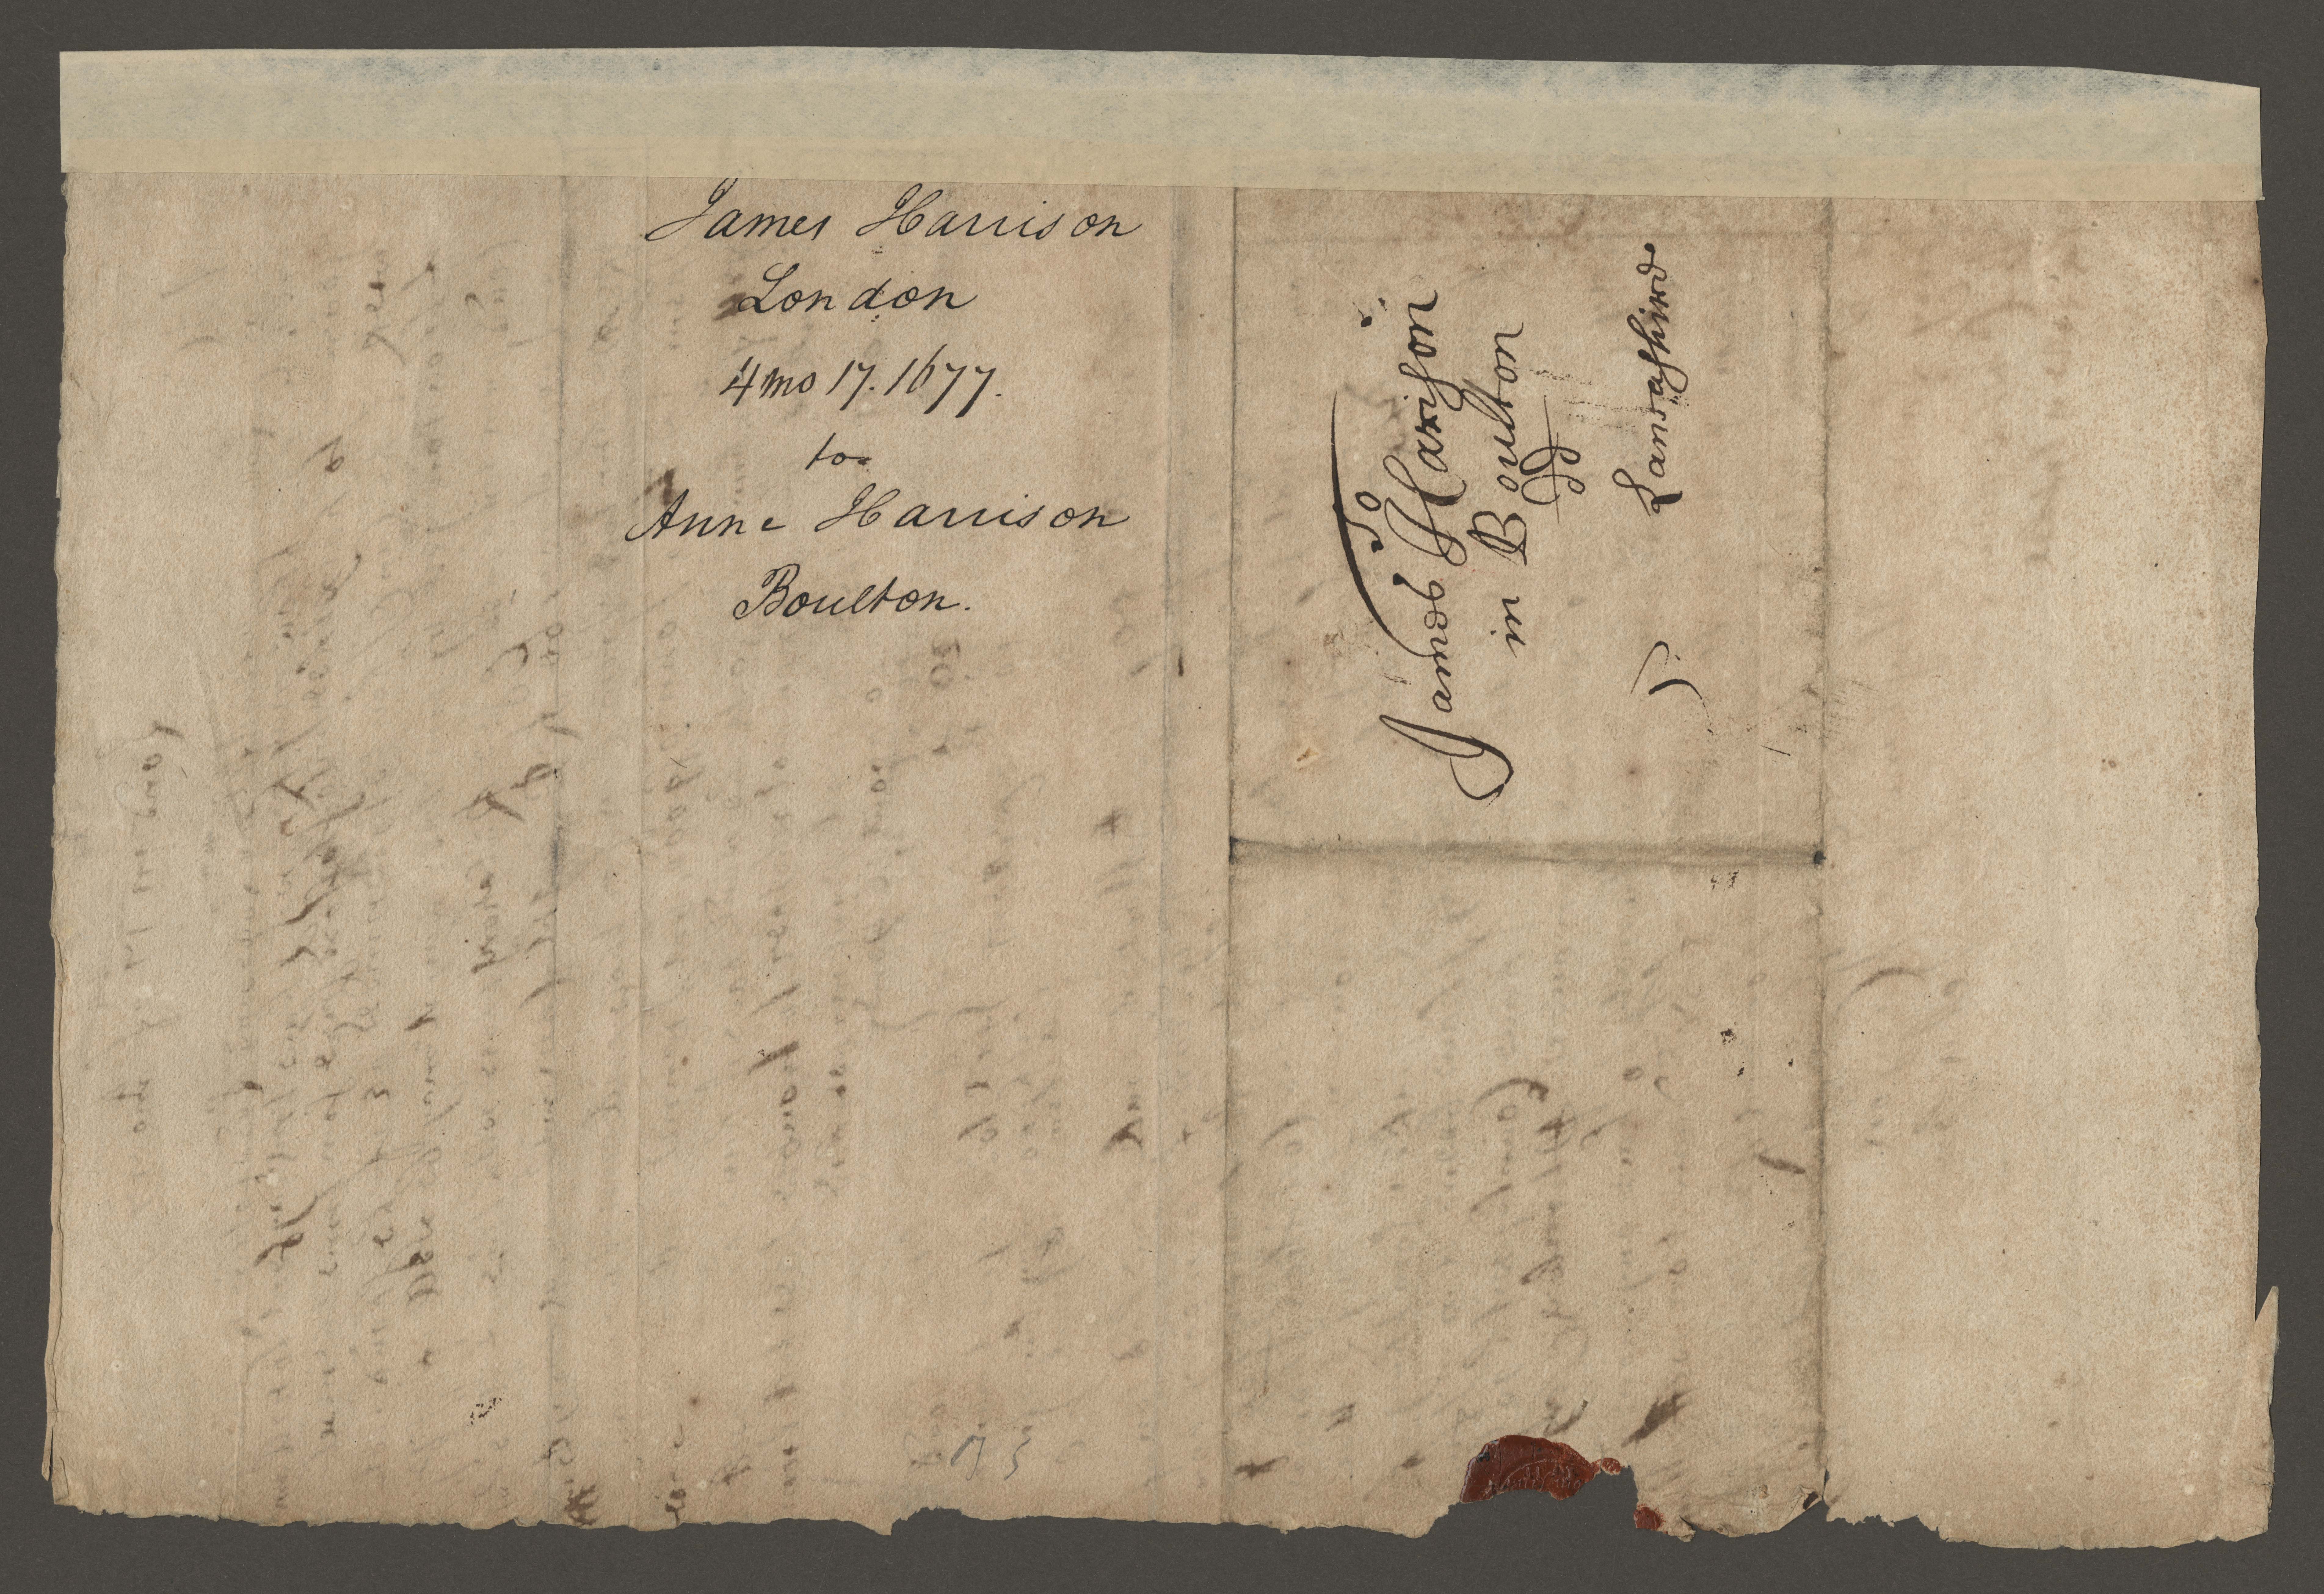 James Harrison
London
4 mo 17. 1677.
to
Anne Harrison
Boulton.
To
James Harison
in Boulton
dd
Lancashire